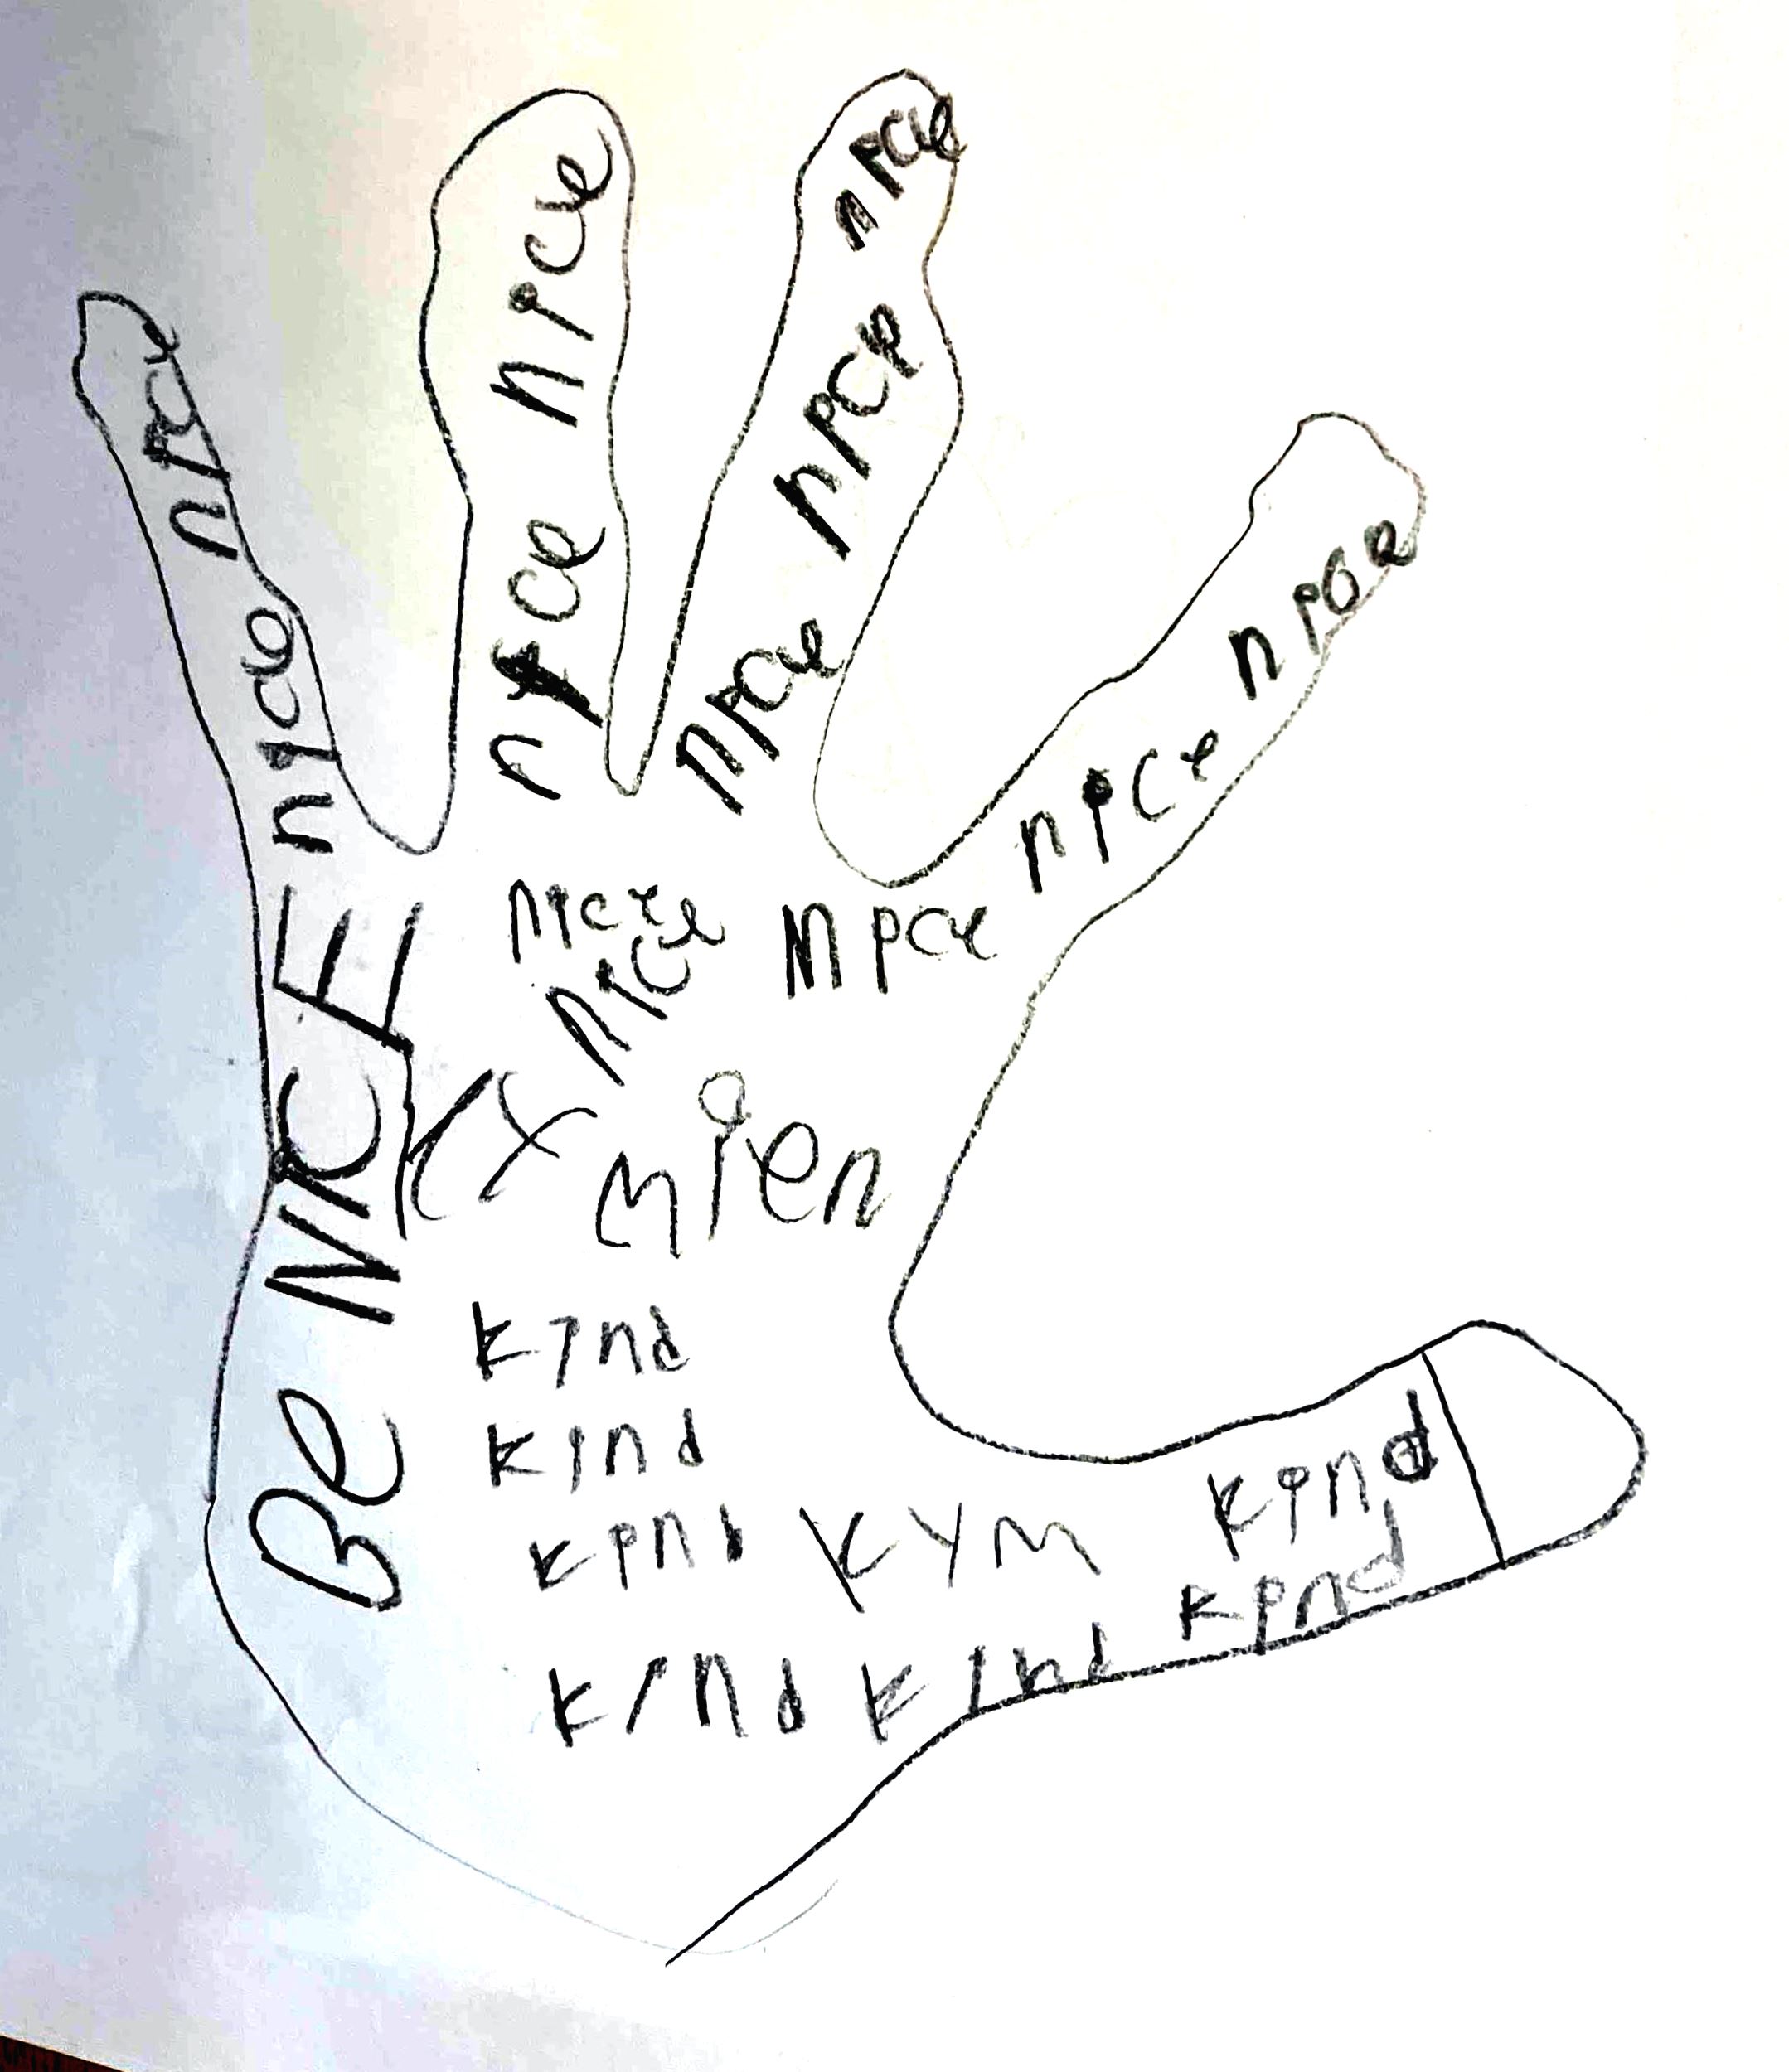 nice nice
nice nice
nice nice nice
nice nice nice
nice
nice
Be NICE
kind
kind
kind KYM kind
kind
kind kind